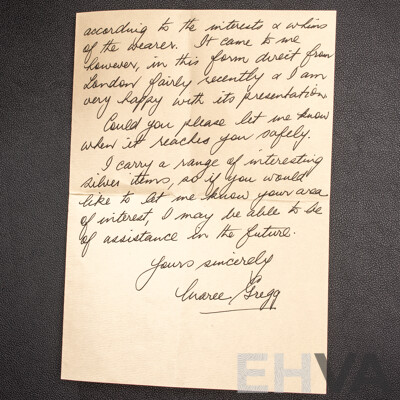 according to the interests & whims
of the wearer. It came to me
however, in this form direct from
London fairly recently & I am
very happy with its presentation
Could you please let me know
when it reaches you safely.
I carry a range of interesting
silver items, so if you would
like to let me know your area
of interest, I may be able to be
of assistance in the future.
Yours sincerely
Maree Gregg
EHVA